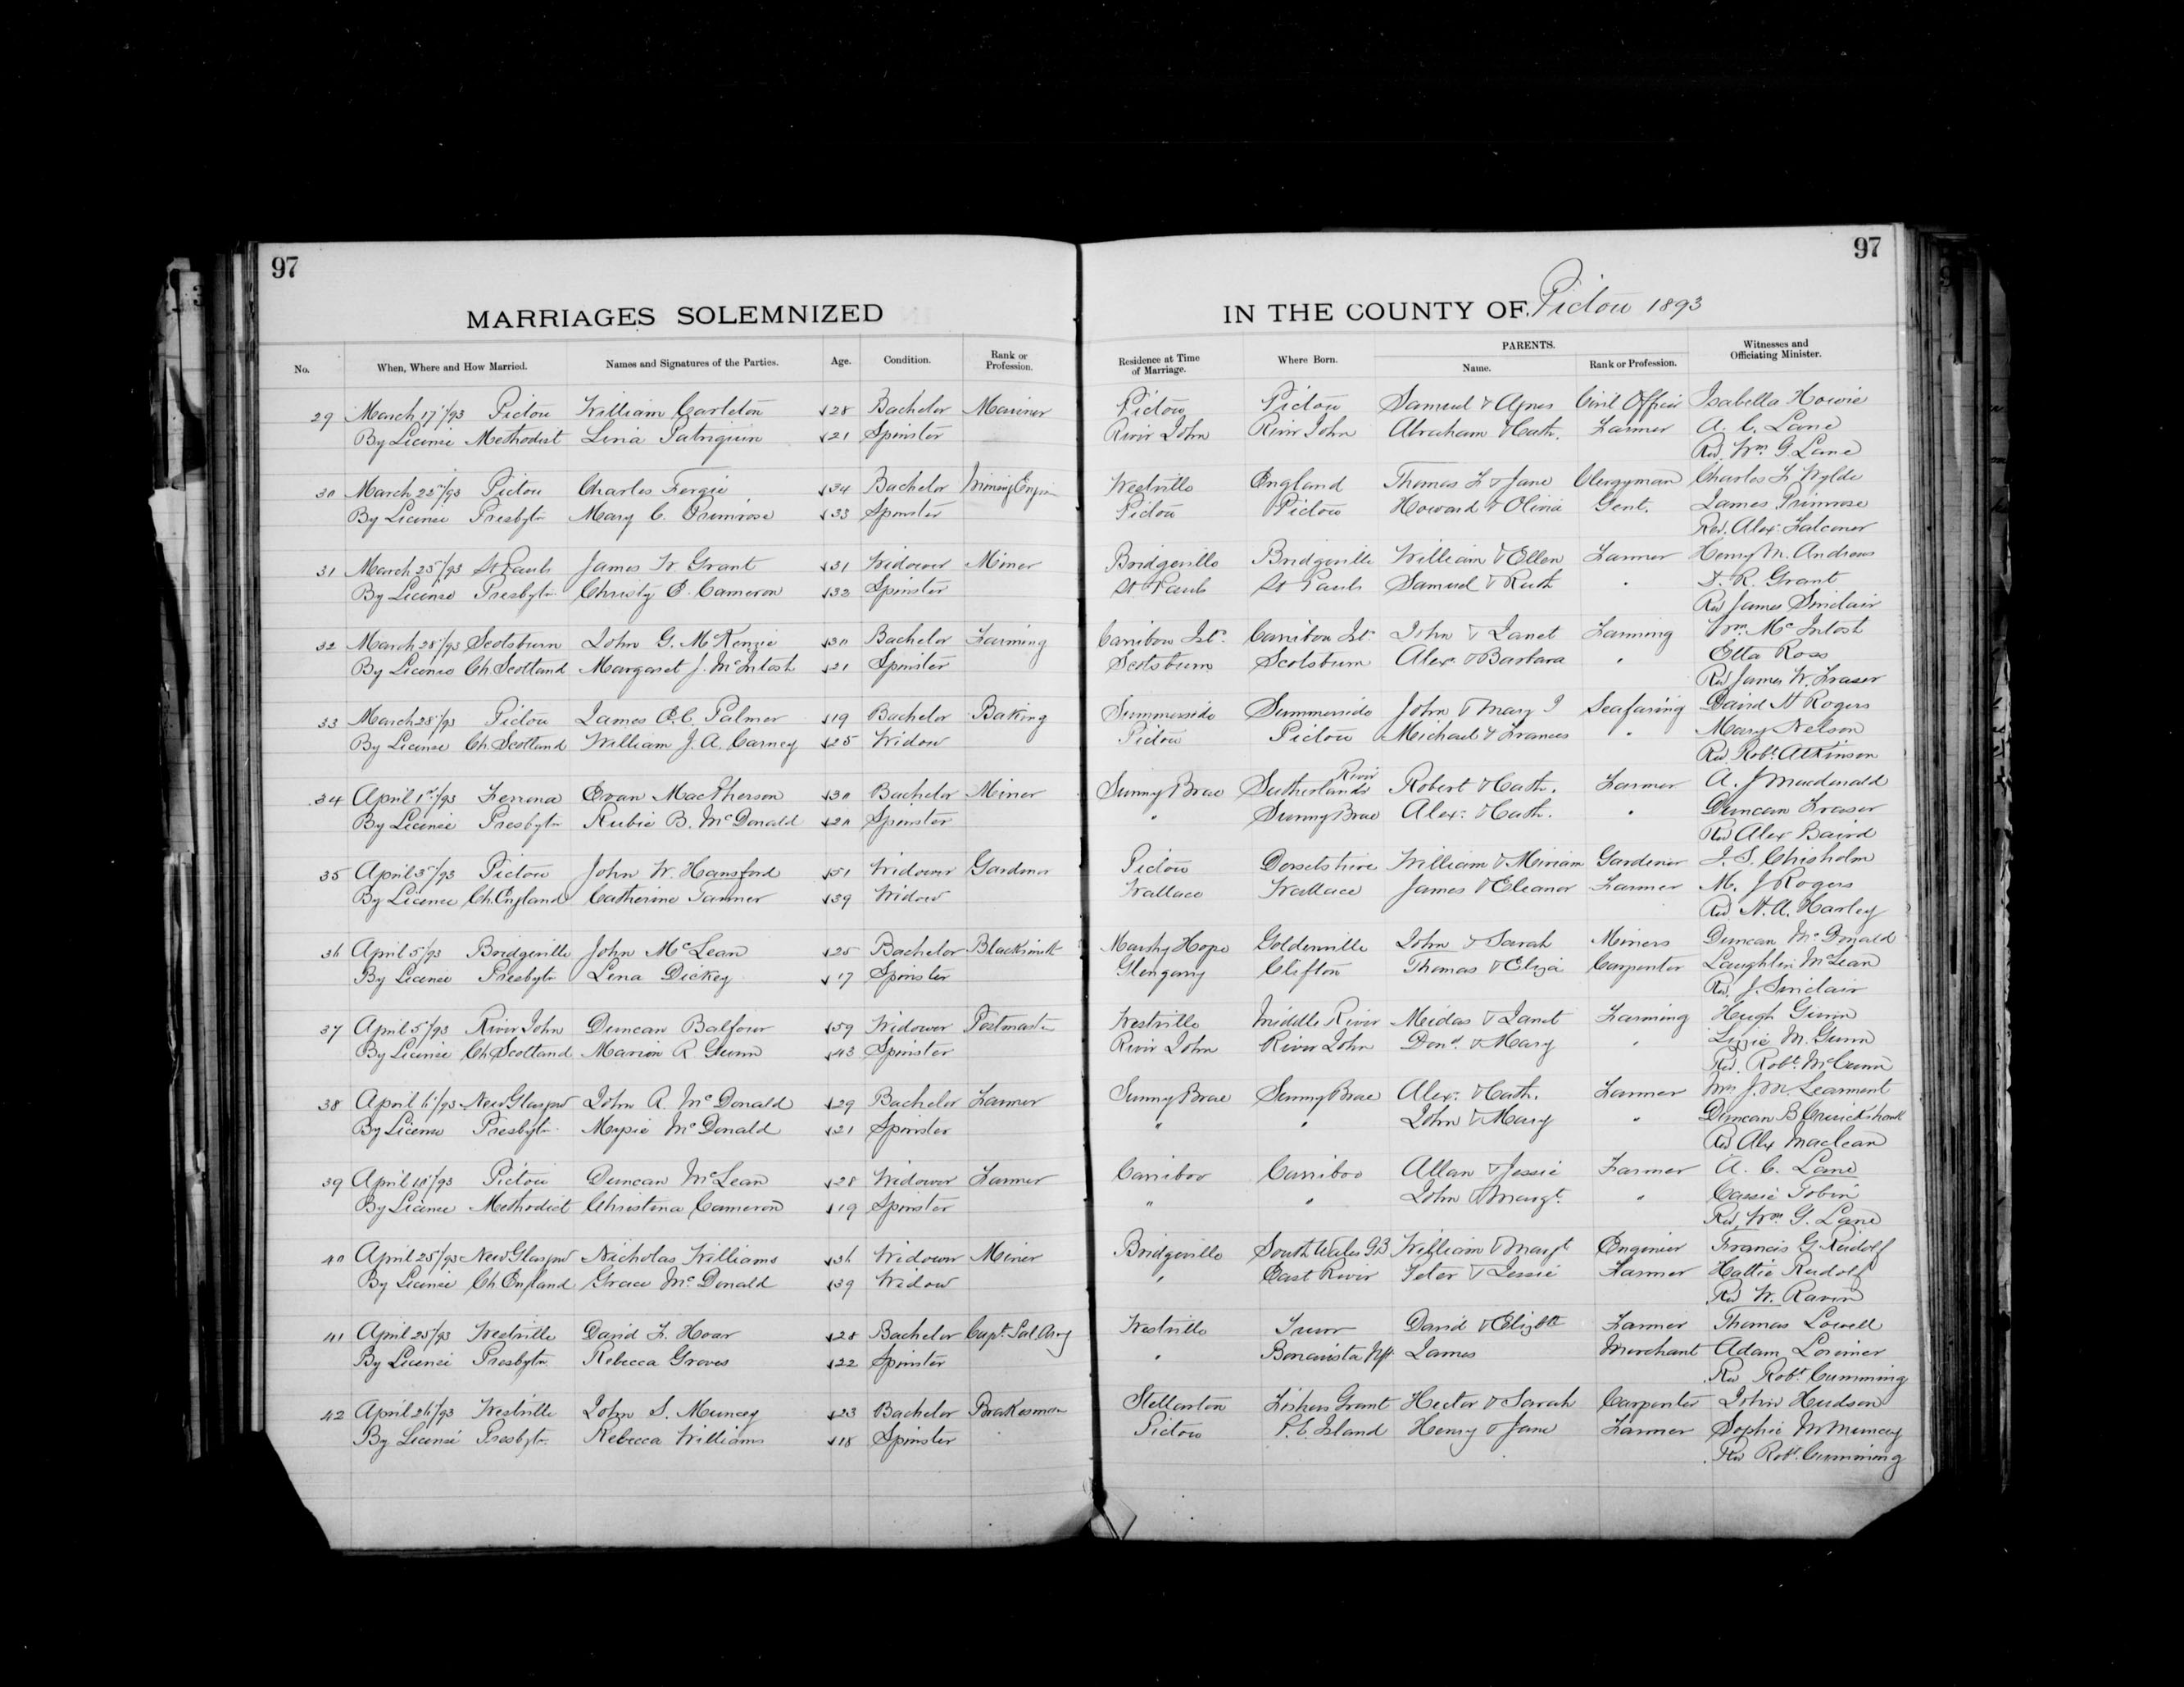 97
MARRIAGES SOLEMNIZED
No. When, Where and How Married. Names and Signatures of the Parties. Age. Condition. Rank or Profession.
29 March 17/93 Pictou William Carleton 28 Bachelor Mariner
By License Methodist Lina Patriquin 21 Spinster
30 March 22/93 Pictou Charles Fergie 34 Bachelor Mining Engin
By License Presbytn Mary C. Primrose 33 Spinster
31 March 25/93 St Pauls James W Grant 31 Widower Miner
By License Presbytn Christy E. Cameron 32 Spinster
32 March 28/93 Scotsburn John G. McKenzie 30 Bachelor Farming
By License Ch Scotland Margaret J. McIntosh 21 Spinster
33 March 28/93 Pictou James E.C. Palmer 19 Bachelor Baking
By License Ch. Scotland William J. A. Carney 25 Widow
34 April 1st/93 Ferrona Evan MacPherson 30 Bachelor Miner
By License Presbytn Rubie B. McDonald 20 Spinster
35 April 3/93 Pictou John W. Hansford 51 Widower Gardner
By License Ch. England Catherine Tanner 39 Widow
36 April 5/93 Bridgeville John McLean 25 Bachelor Blacksmith
By License Presbytn Lena Dickey 17 Spinster
37 April 5/93 River John Duncan Balfour 59 Widower Postmaster
By License Ch. Scotland Marion R Gunn 43 Spinster
38 April 6/93 New Glasgow John A. McDonald 29 Bachelor Farmer
By License Presbytn Mysie McDonald 21 Spinster
39 April 18/93 Pictou Duncan McLean 28 Widower Farmer
By License Methodist Christena Cameron 19 Spinster
40 April 25/93 New Glasgow Nicholas Williams 36 Widower Miner
By License Ch. England Grace McDonald 39 Widow
41 April 25/93 Westville David F. Hoar 28 Bachelor Capt. Sal. Army
By License Presbytn Rebecca Groves 22 Spinster
42 April 26/93 Westville John S. Muncey 23 Bachelor Brakesman
By License Presbytn Rebecca Williams 18 Spinster
97
IN THE COUNTY OF Pictou 1893
Residence at Time of Marriage. Where Born. PARENTS. Name. Rank or Profession. Witnesses and Officiating Minister.
Pictou Pictou Samuel & Agnes Civil Officer Isabella Howie
River John River John Abraham & Cath. Farmer A. C. Lane
Rev. Wm G. Lane
Westville England Thomas F & Jane Clergyman Charles F Wylde
Pictou Pictou Howard & Olivia Gent. James Primrose
Rev. Alex. Falconer
Bridgeville Bridgeville William & Ellen Farmer Henry M. Andrews
St Pauls St Pauls Samuel & Ruth " R. Grant
Rev James Sinclair
Carribou Isl. Carribou Isl. John & Janet Farming Wm. McIntosh
Scotsburn Scotsburn Alex. & Barbara " Etta Ross
Rev James W. Fraser
Summerside Summerside John & Mary J Seafaring David H Rogers
Pictou Pictou Michael & Frances " Mary Nelson
Rev. Robt. Atkinson
Sunny Brae Sutherlands River Robert & Cath. Farmer A. J Macdonald
" Sunny Brae Alex. & Cath. " Duncan Fraser
Rev Alex Baird
Pictou Dorsetshire William & Miriam Gardener J. S. Chisholm
Wallace Wallace James & Eleanor Farmer M. J Rogers
Rev H. A. Harley
Marshy Hope Goldenville John & Sarah Miners Duncan McDonald
Glengarry Clifton Thomas & Eliza Carpenter Laughlin McLean
Rev. J. Sinclair
Westville Middle River Meidas & Janet Farming Hugh Gunn
River John River John Dond. & Mary " Lizzie M. Gunn
Rev. Robt. McCunn
Sunny Brae Sunny Brae Alex. & Cath. Farmer Mrs J. M. Learment
" " John & Mary " Duncan B Cruickshank
Rev Alex Maclean
Carriboo Carriboo Allan & Jessie Farmer A. C. Lane
" " John & Margt. " Cassie Tobin
Rev. Wm G. Lane
Bridgeville South Wales GB William & Margt Engineer Francis G Rudolf
" East River Peter & Jessie Farmer Hattie Rudolf
Rev W. Raven
Westville Truro David & Elizbth Farmer Thomas Lowell
" Bonavista Nfl James Merchant Adam Lorimer
Rev Robt. Cumming
Stellarton Fishers Grant Hector & Sarah Carpenter John Hudson
Pictou P.E. Island Henry & Jane Farmer Sophie M Muncey
Rev Robt. Cumming